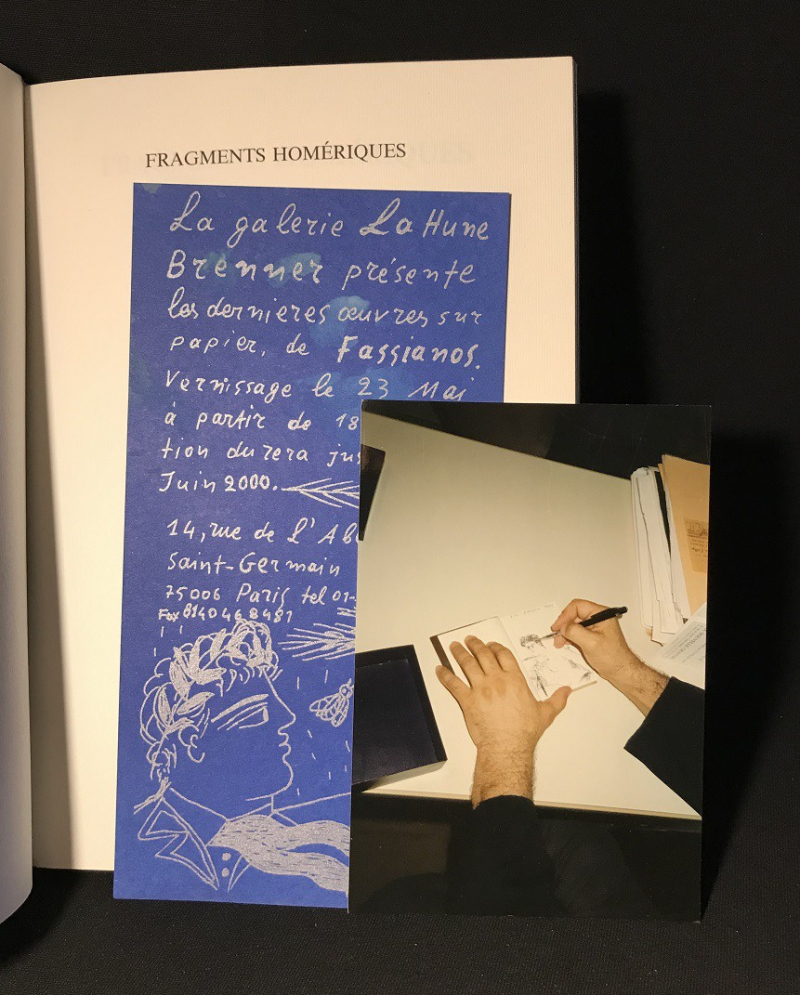 FRAGMENTS HOMÉRIQUES
La galerie La Hune
Brenner présente
les dernieres œuvres sur
papier, de Fassianos.
Vernissage le 23 Mai
à partir de 18
tion durera jus
Juin 2000.
14, rue de l'Ab
Saint-Germain
75006 Paris tel 01-
Fax 0140468481